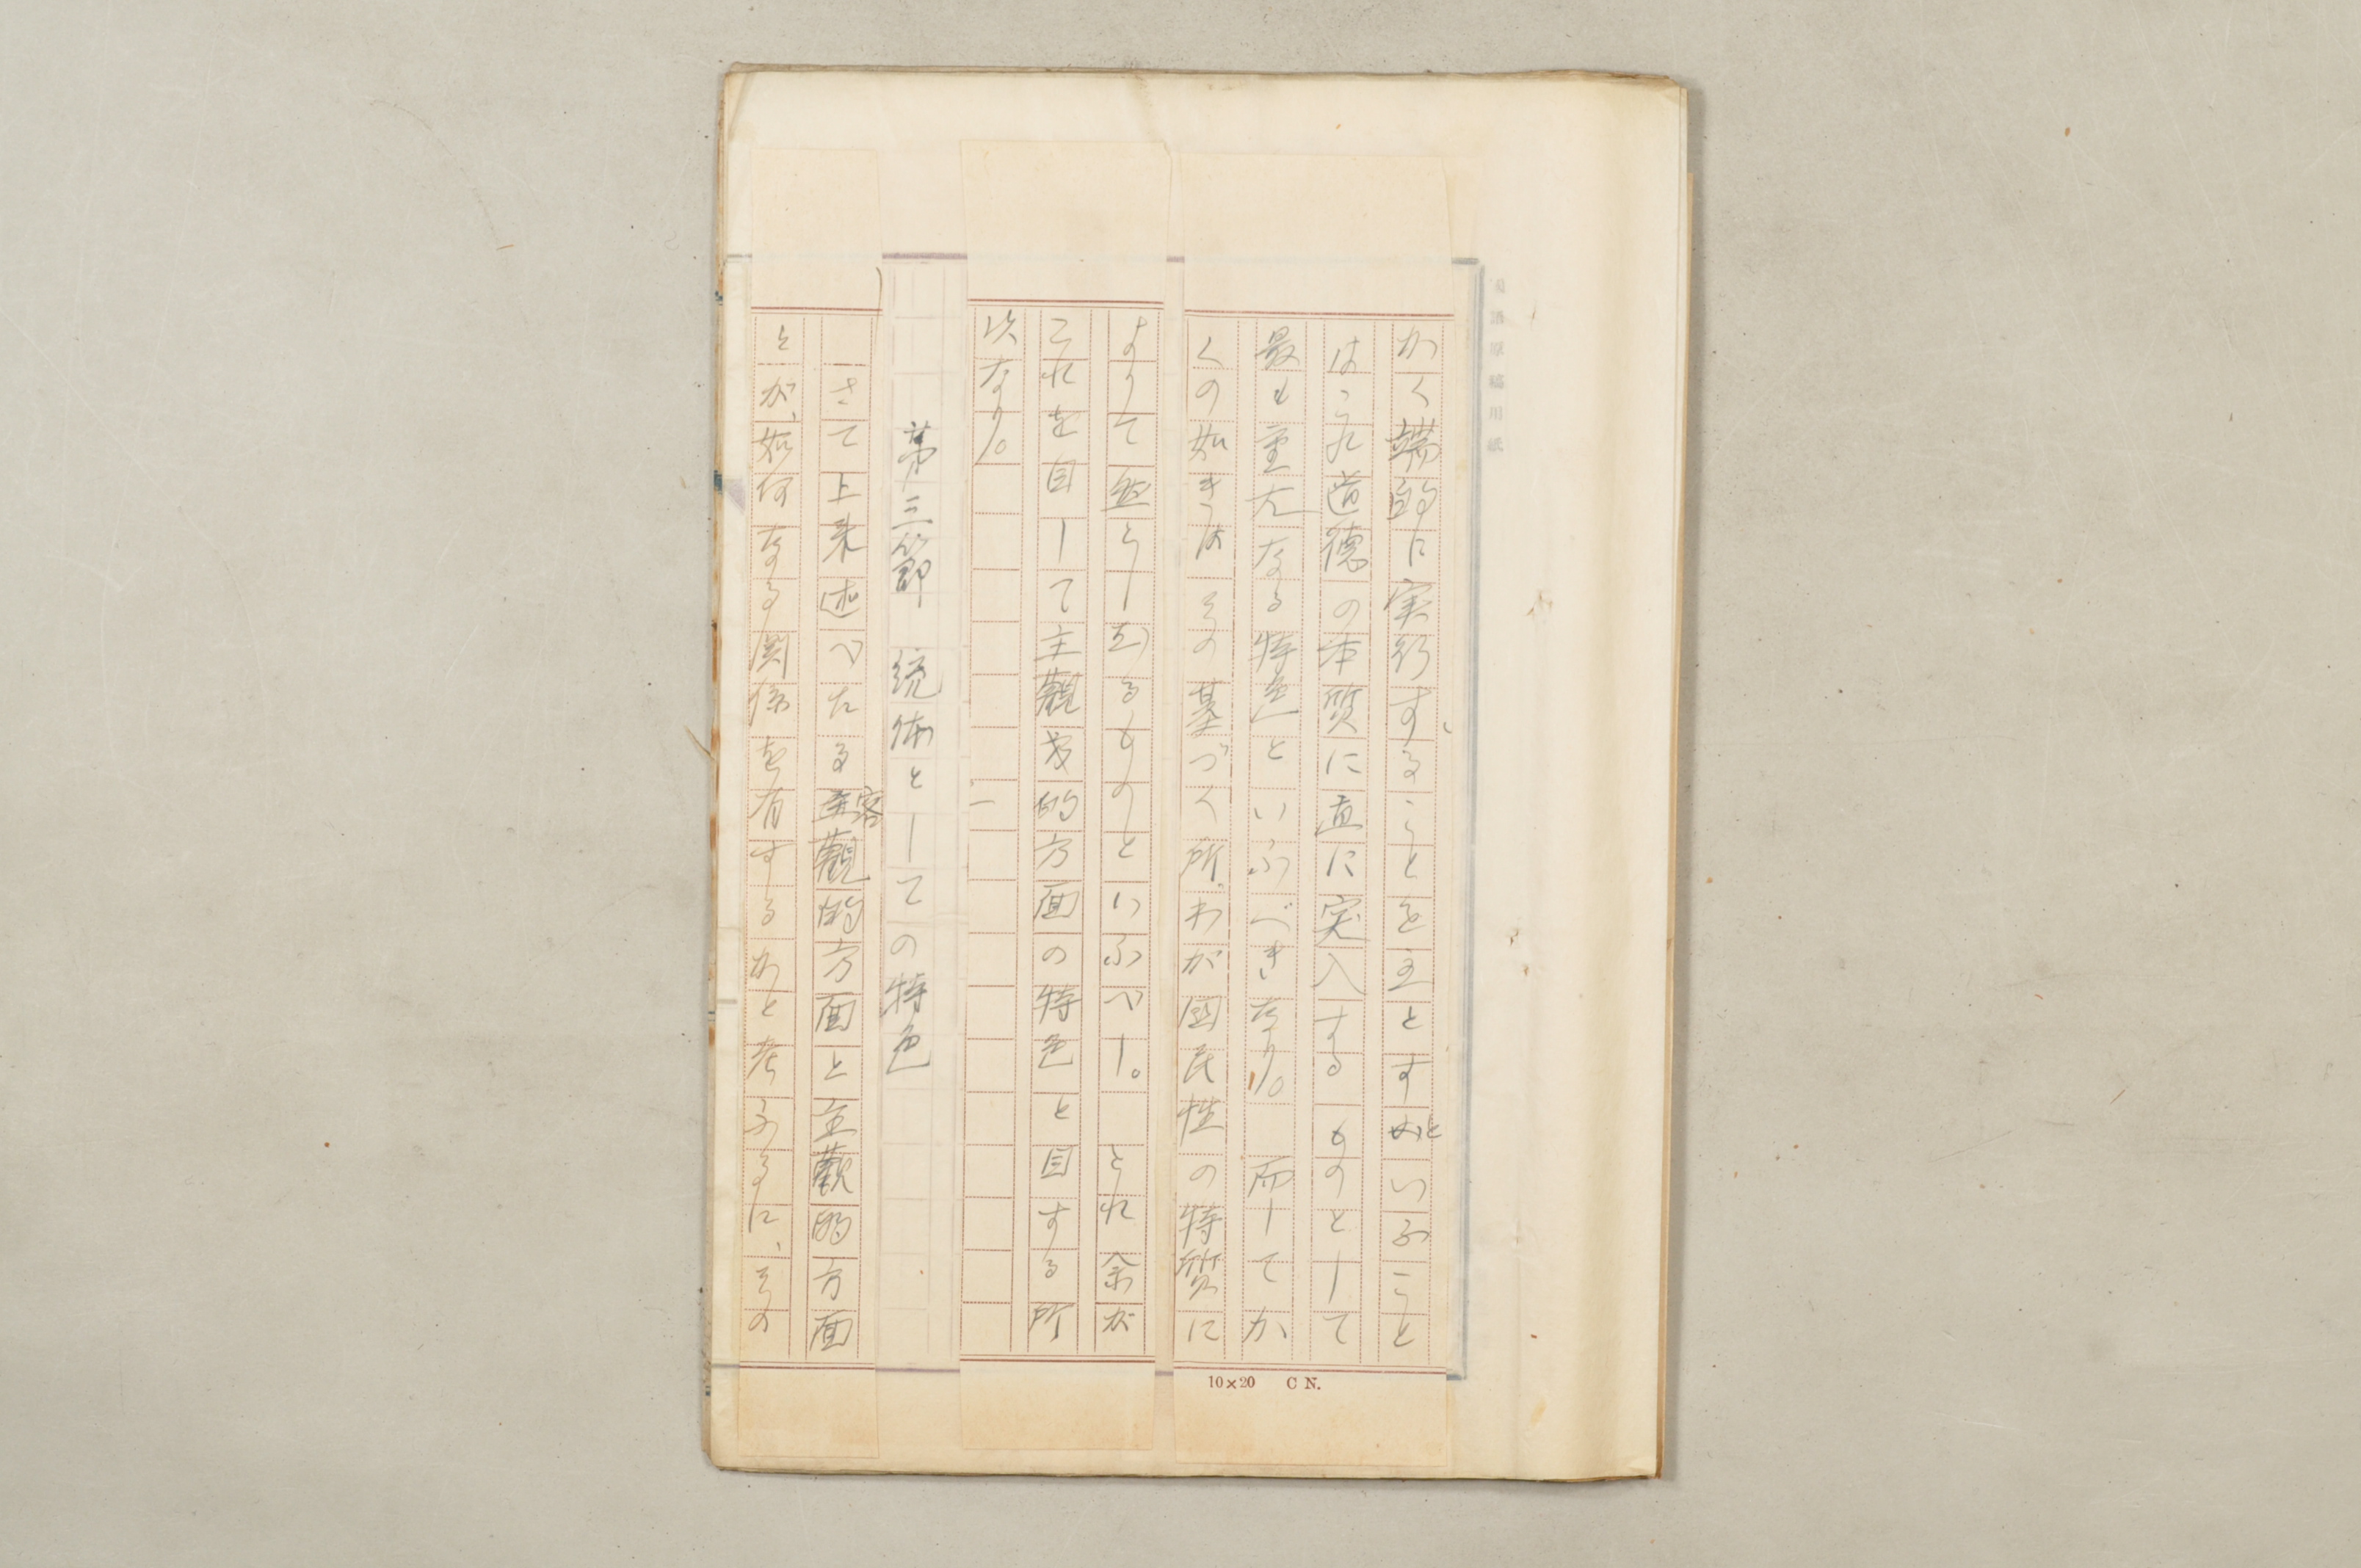 原稿用紙
かく端的に実行することを主とすといふこと
はこれ道德の本質に直に突入するものとして
最も重大なる特色といふべきなり。 而してか
くの如きはその基づく所、わが国民性の特質に
よりて然らしむるものといふべし。 これ余が
これを目して主觀的方面の特色と目する所
以なり。
第三節 統体としての特色
さて上来述べたる客觀的方面と主観的方面
とが、如何なる関係を有するかと考ふるに、その
10×20 C N.